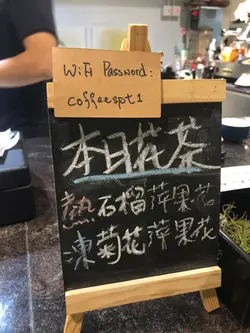 WiFi Password:
coffeespt1
本日花茶
熱石榴萍果花
凍菊花萍果花